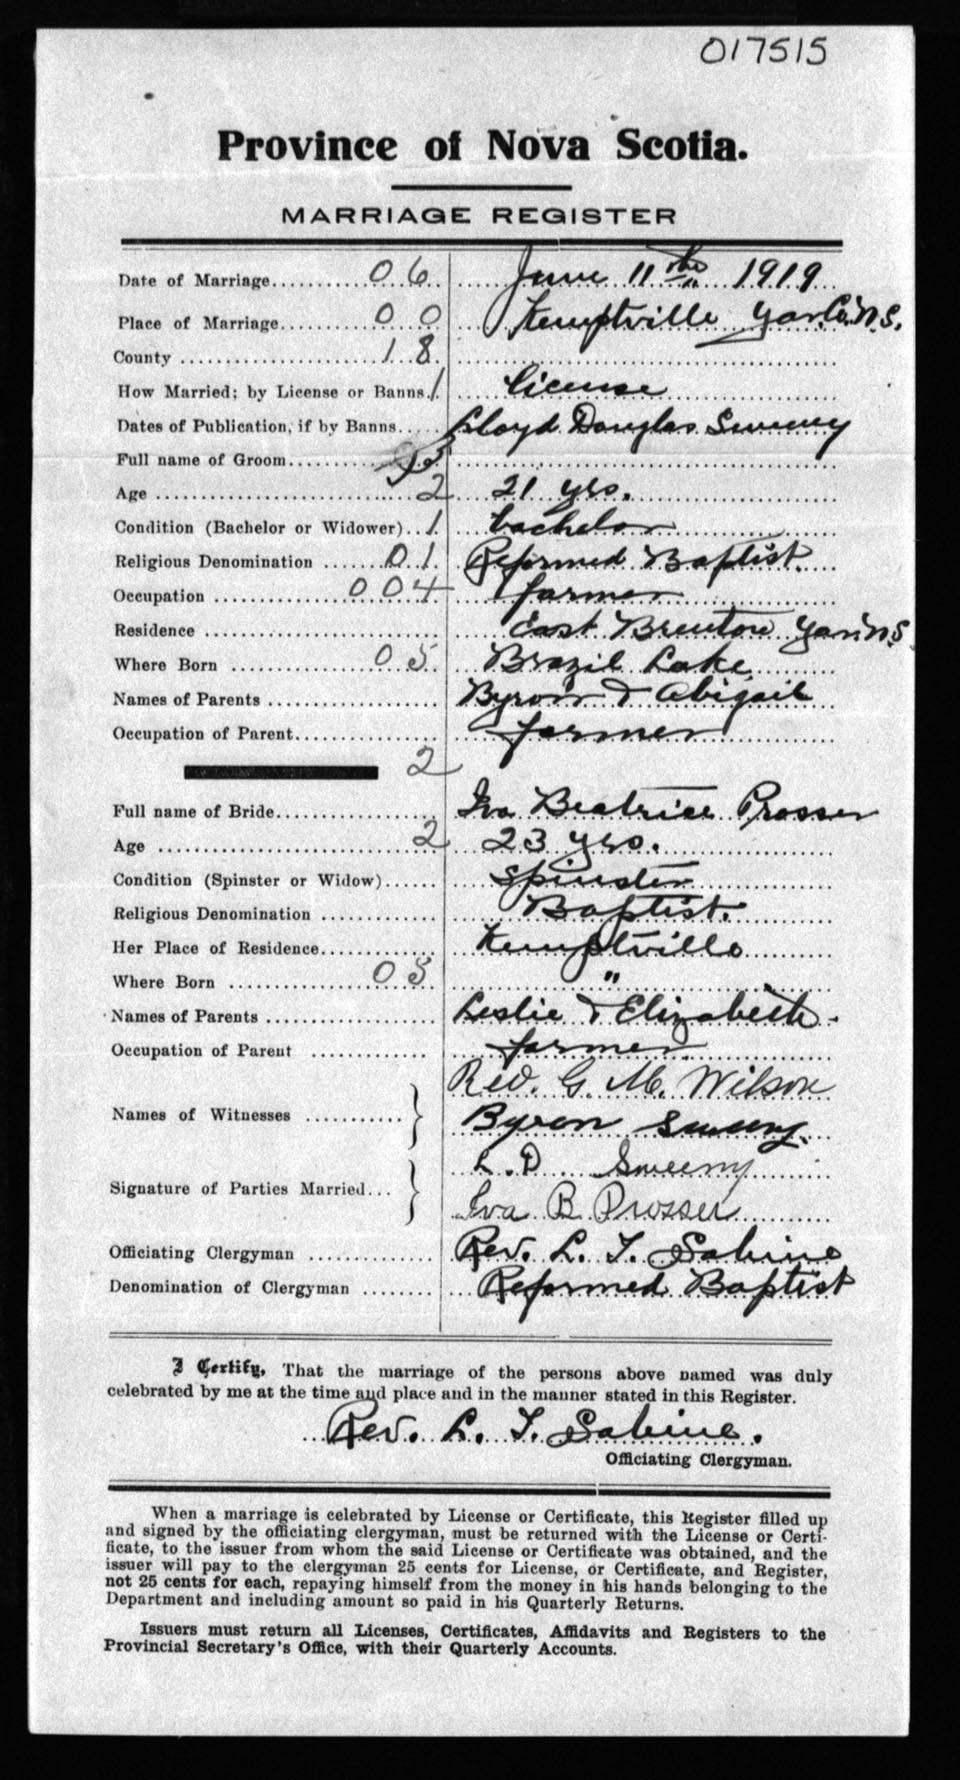 017515
Province of Nova Scotia.
MARRIAGE REGISTER
Date of Marriage 06 June 11th 1919
Place of Marriage 00 Kemptville Yar. Co. N.S.
County 18
How Married; by License or Banns 1 License
Dates of Publication, if by Banns Lloyd Douglas Sweeny
Full name of Groom
Age 2 21 yrs.
Condition (Bachelor or Widower) 1 bachelor
Religious Denomination 01 Reformed Baptist.
Occupation 004 farmer
Residence East Brenton Yar. N.S.
Where Born 05 Brazil Lake
Names of Parents Byron & Abigail
Occupation of Parent farmer
2
Full name of Bride Iva Beatrice Prosser
Age 2 23 yrs.
Condition (Spinster or Widow) Spinster
Religious Denomination Baptist.
Her Place of Residence Kemptville
Where Born 05 "
Names of Parents Leslie & Elizabeth.
Occupation of Parent farmer
Rev. G. M. Wilson
Names of Witnesses
Byron Sweeny.
L. D. Sweeny
Signature of Parties Married
Iva B Prosser
Officiating Clergyman Rev. L. T. Sabine
Denomination of Clergyman Reformed Baptist
I Certify, That the marriage of the persons above named was duly
celebrated by me at the time and place and in the manner stated in this Register.
Rev. L. T. Sabine.
Officiating Clergyman.
When a marriage is celebrated by License or Certificate, this Register filled up
and signed by the officiating clergyman, must be returned with the License or Certi-
ficate, to the issuer from whom the said License or Certificate was obtained, and the
issuer will pay to the clergyman 25 cents for License, or Certificate, and Register,
not 25 cents for each, repaying himself from the money in his hands belonging to the
Department and including amount so paid in his Quarterly Returns.
Issuers must return all Licenses, Certificates, Affidavits and Registers to the
Provincial Secretary's Office, with their Quarterly Accounts.